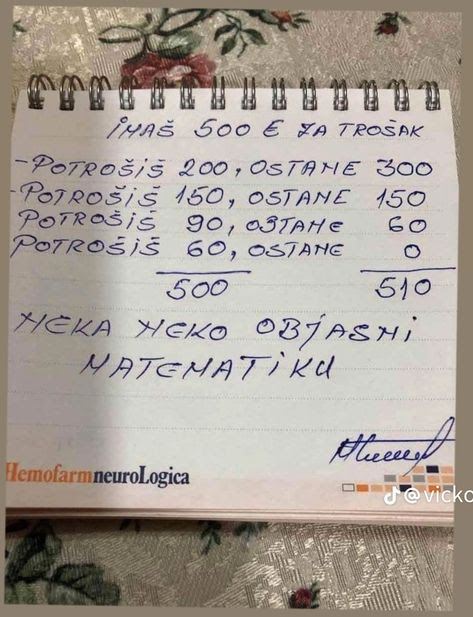 IMAŠ 500 € ZA TROŠAK
- POTROŠIŠ 200, OSTANE 300
- POTROŠIŠ 150, OSTANE 150
POTROŠIŠ 90, OSTANE 60
POTROŠIŠ 60, OSTANE 0
500 510
NEKA NEKO OBJASNI
MATEMATIKU
HemofarmneuroLogica
@vicko